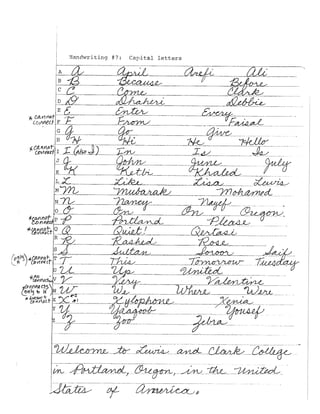 Handwriting #7: Capital letters
A A April Arefi Ali
B B Because Before
C C Come Clark
D D Dhaheri Debbie
E E Enter Every
* CANNOT CONNECT F F From Faisal
G G Go Give
H H Hi He Hello
* CANNOT CONNECT I I (also I) In Is Is
J J John June July
K K Ketbi Khaled
L L Like Lisa Lewis
M M Mubarak Mohamed
N N Nancy Nayef
O O On On Oregon.
* CANNOT CONNECT P P Portland Please
* CANNOT CONNECT Q Q Quiet! Qertasi
R R Rashed Rose
S S Sultan Soroor Saif
* CANNOT CONNECT T T This Tomorrow Tuesday
U U Up United
V V Very Valentine
W W We Where Were
X X Xylophone Xenia
Y Y Yaagoob Yousef
Z Z Zoo Zebra
Welcome to Lewis and Clark College
in Portland, Oregon, in the United
States of America.